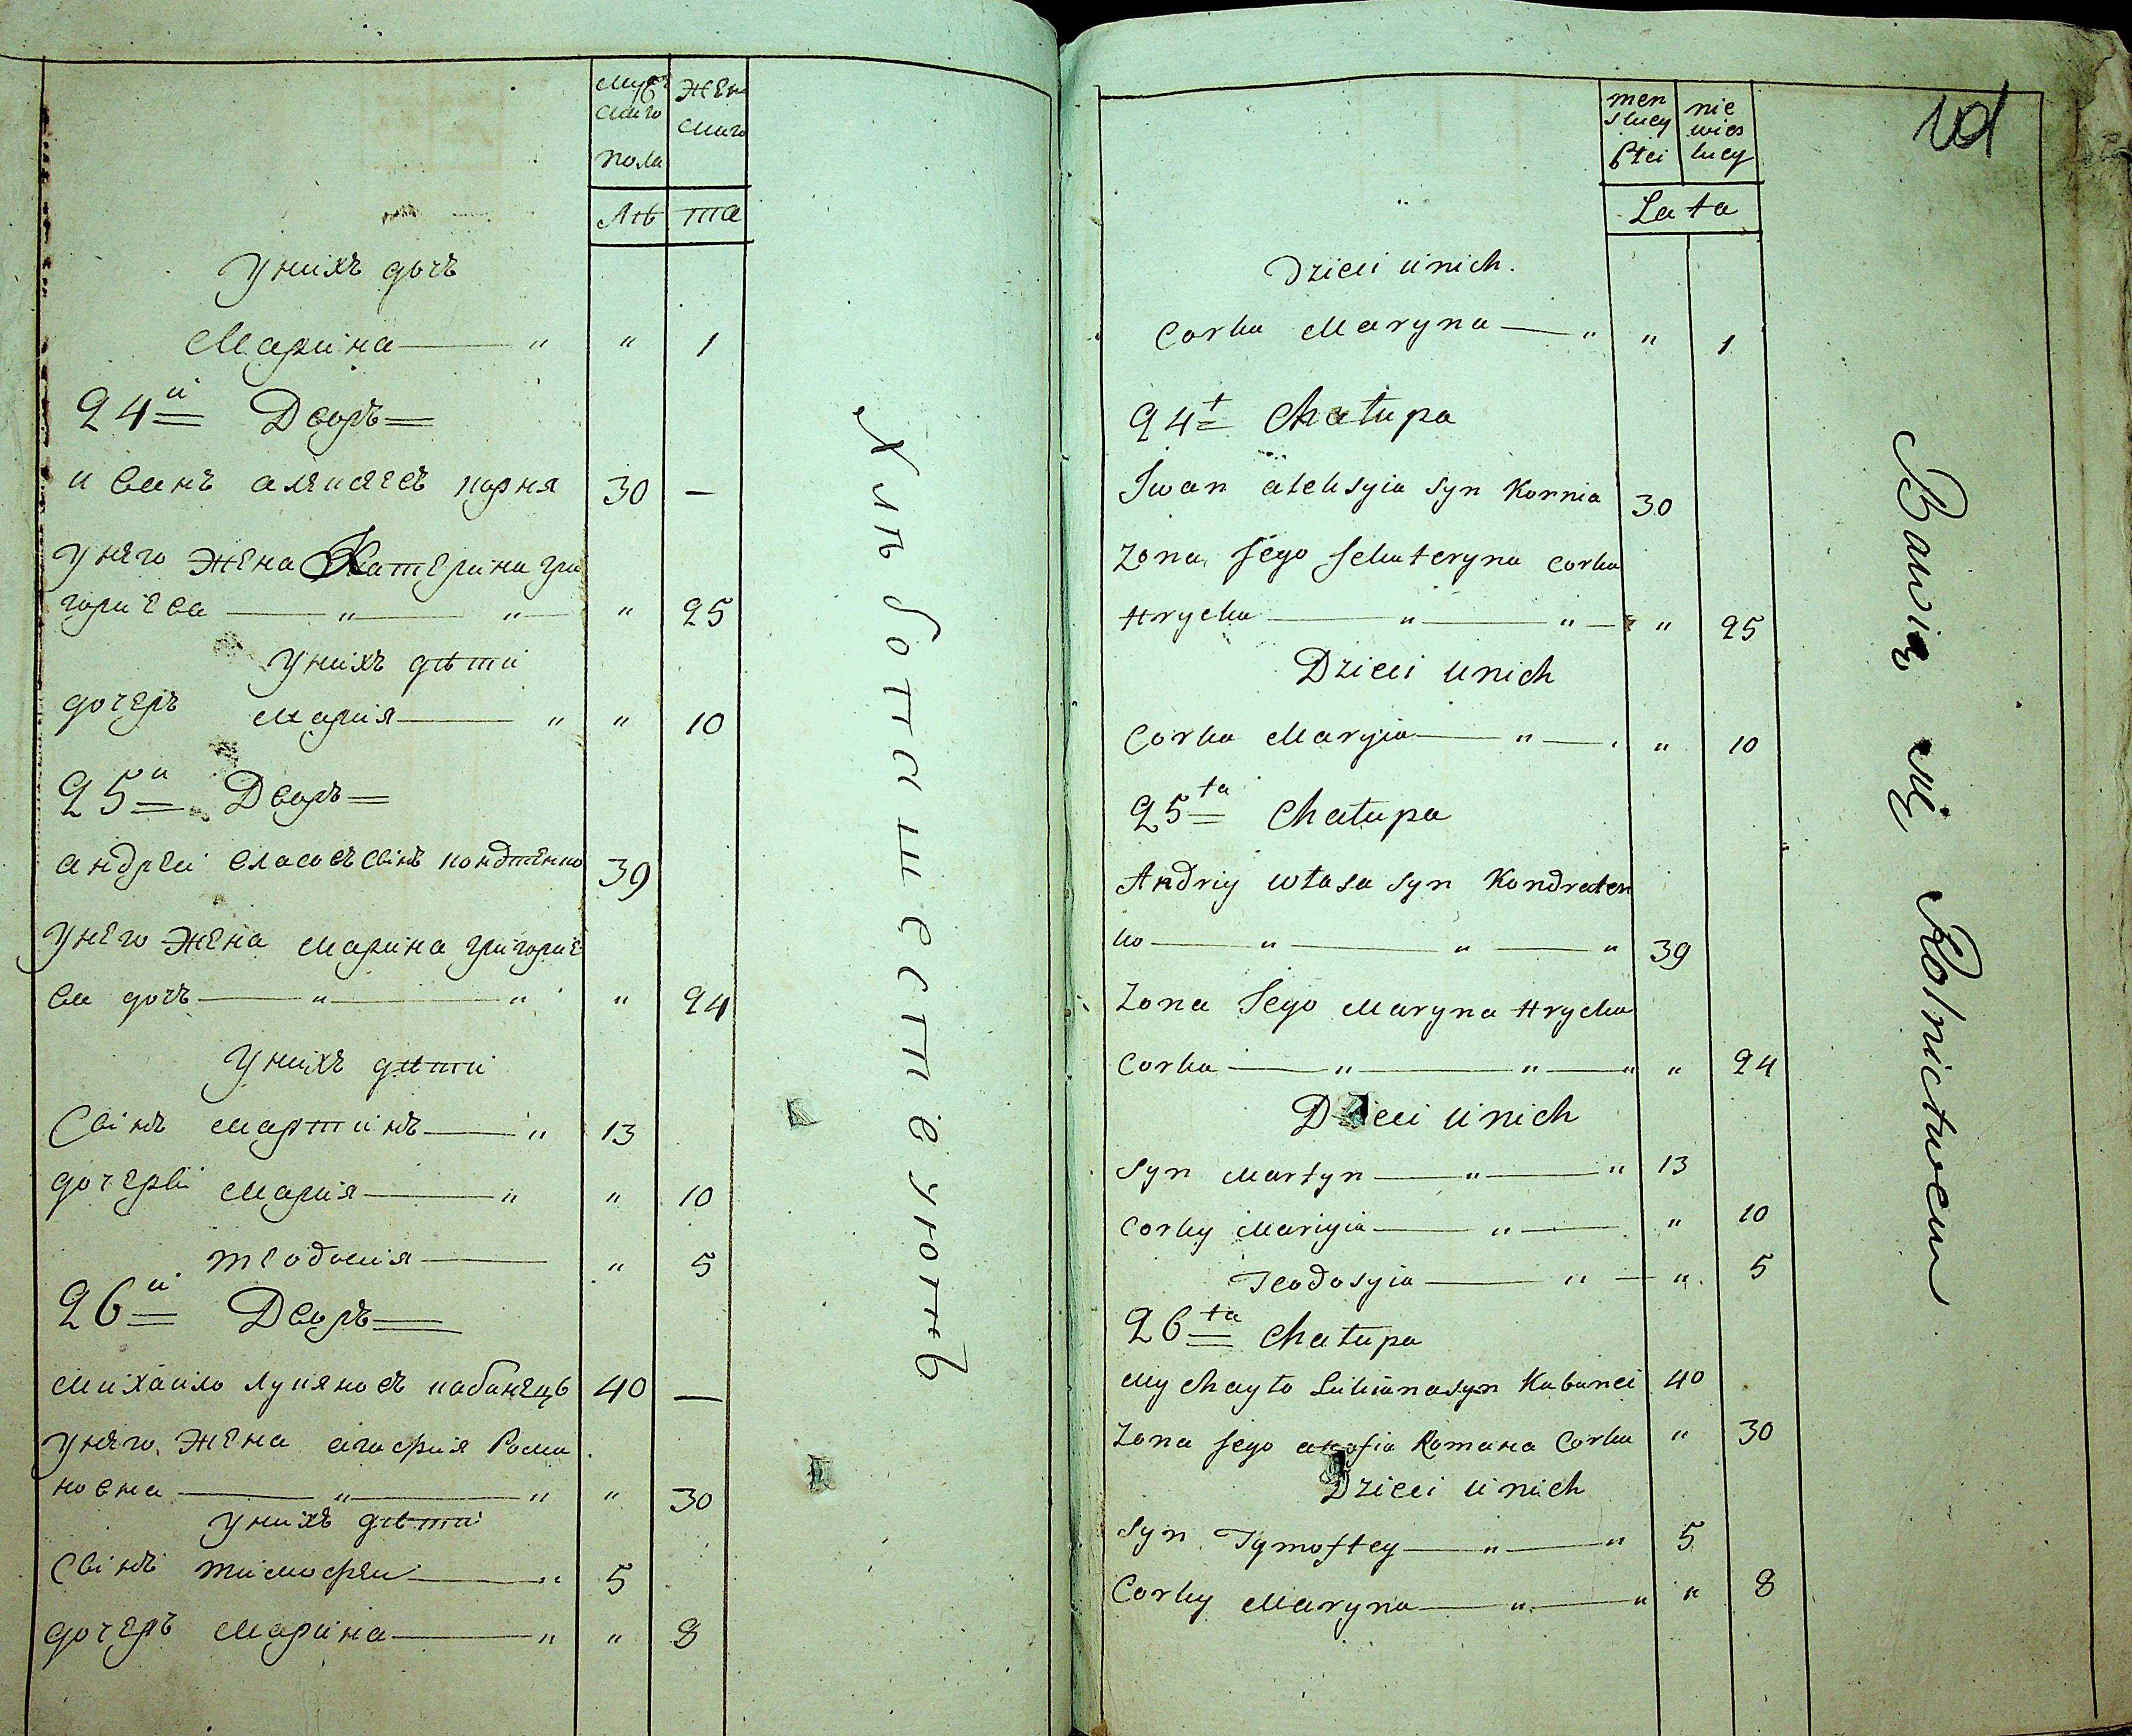 мужскаго пола
женскаго
Лѣта
У нихъ дочь
Марина — " " 1
24й Дворъ
иванъ алексеевъ корня 30 —
у няго жена Катерина григориева — " — " — " 25
У нихъ дѣти
дочеръ мария — " " 10
25й Дворъ
андреи власовъ свінъ кондтенко 39
у него жена марина григориева дочь — " — " " 24
У нихъ дѣти
Свінъ мартинъ — " 13
дочерві мария — " " 10
теодосия — " 5
26й Дворъ
михаило лукяновъ кабанецъ 40 —
у няго жена агафия Романовна — " — " " 30
У нихъ дѣти
Свінъ тимофеи — " 5
дочеръ марина — " " 8
Хлѣбопашествеуютъ
menskiey płci
niewieskiey
Lata
Dzieci u nich.
Corka Maryna — " " 1
24ta Chałupa
Iwan aleksyia syn Kornia 30
Zona jego jekateryna corka
Hrycka — " — " — " 25
Dzieci u nich
Corka Maryia — " — " 10
25ta Chałupa
Andriy własa syn Kondraten
ko — " — " — " 39
Zona Jego Maryna Hrycka
Corka — " — " — " " 24
Dzieci u nich
Syn Martyn — " — " 13
Corky Mariyia — " — " 10
Teodosyia — " — " 5
26ta Chałupa
Mychayło Lukiana syn Kabanei 40
Zona jego akafia Romana Corka " 30
Dzieci u nich
Syn Tymoftey — " — " 5
Corky Maryna — " — " " 8
Bawią się Rolnictwem